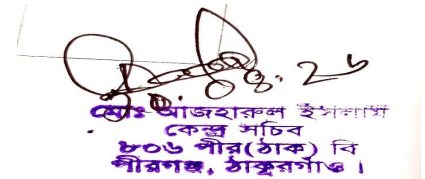 ২০.০৪.২৬
মোঃ আজহারুল ইসলাম
কেন্দ্র সচিব
৮০৬ পীর(ঠাক) বি
পীরগঞ্জ, ঠাকুরগাঁও।